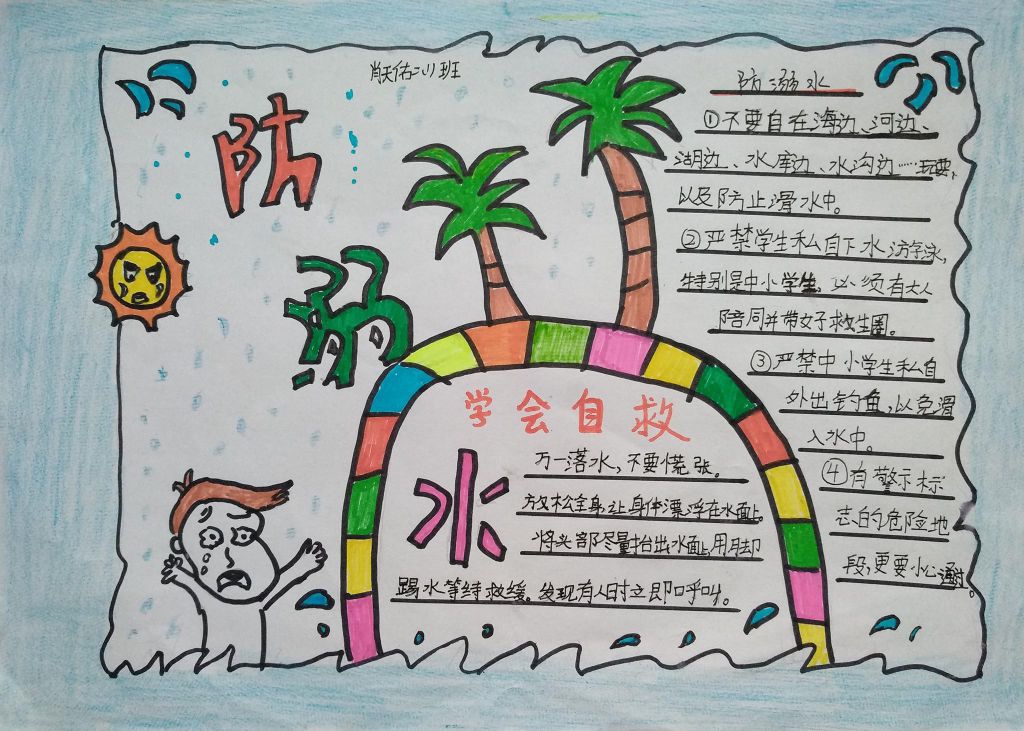 肖天佑 二.1班
防
溺
水
学会自救
万一落水,不要慌张。
放松全身,让身体漂浮在水面上。
将头部尽量抬出水面,用脚
踢水等待救援。发现有人时立即呼叫。
防溺水
①不要自在海边、河边、
湖边、水库边、水沟边……玩耍、
以及防止滑水中。
②严禁学生私自下水游泳,
特别是中小学生,必须有大人
陪同并带好救生圈。
③严禁中小学生私自
外出钓鱼,以免滑
入水中。
④有警示标
志的危险地
段,更要小心